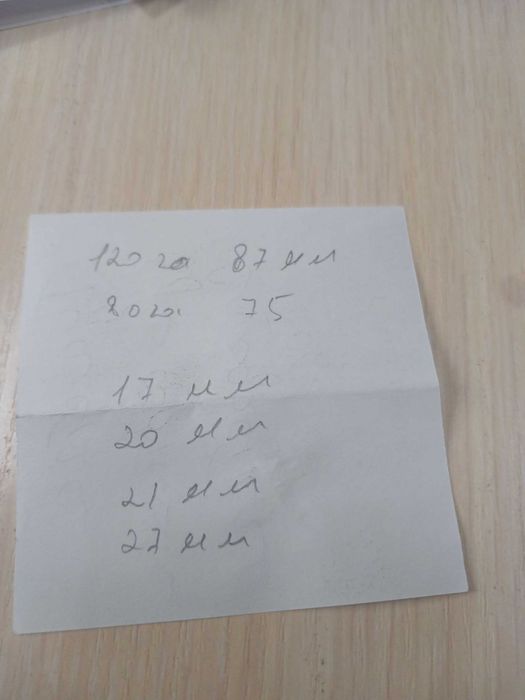 120 га 87 мм
80 га 75
17 мм
20 мм
21 мм
27 мм